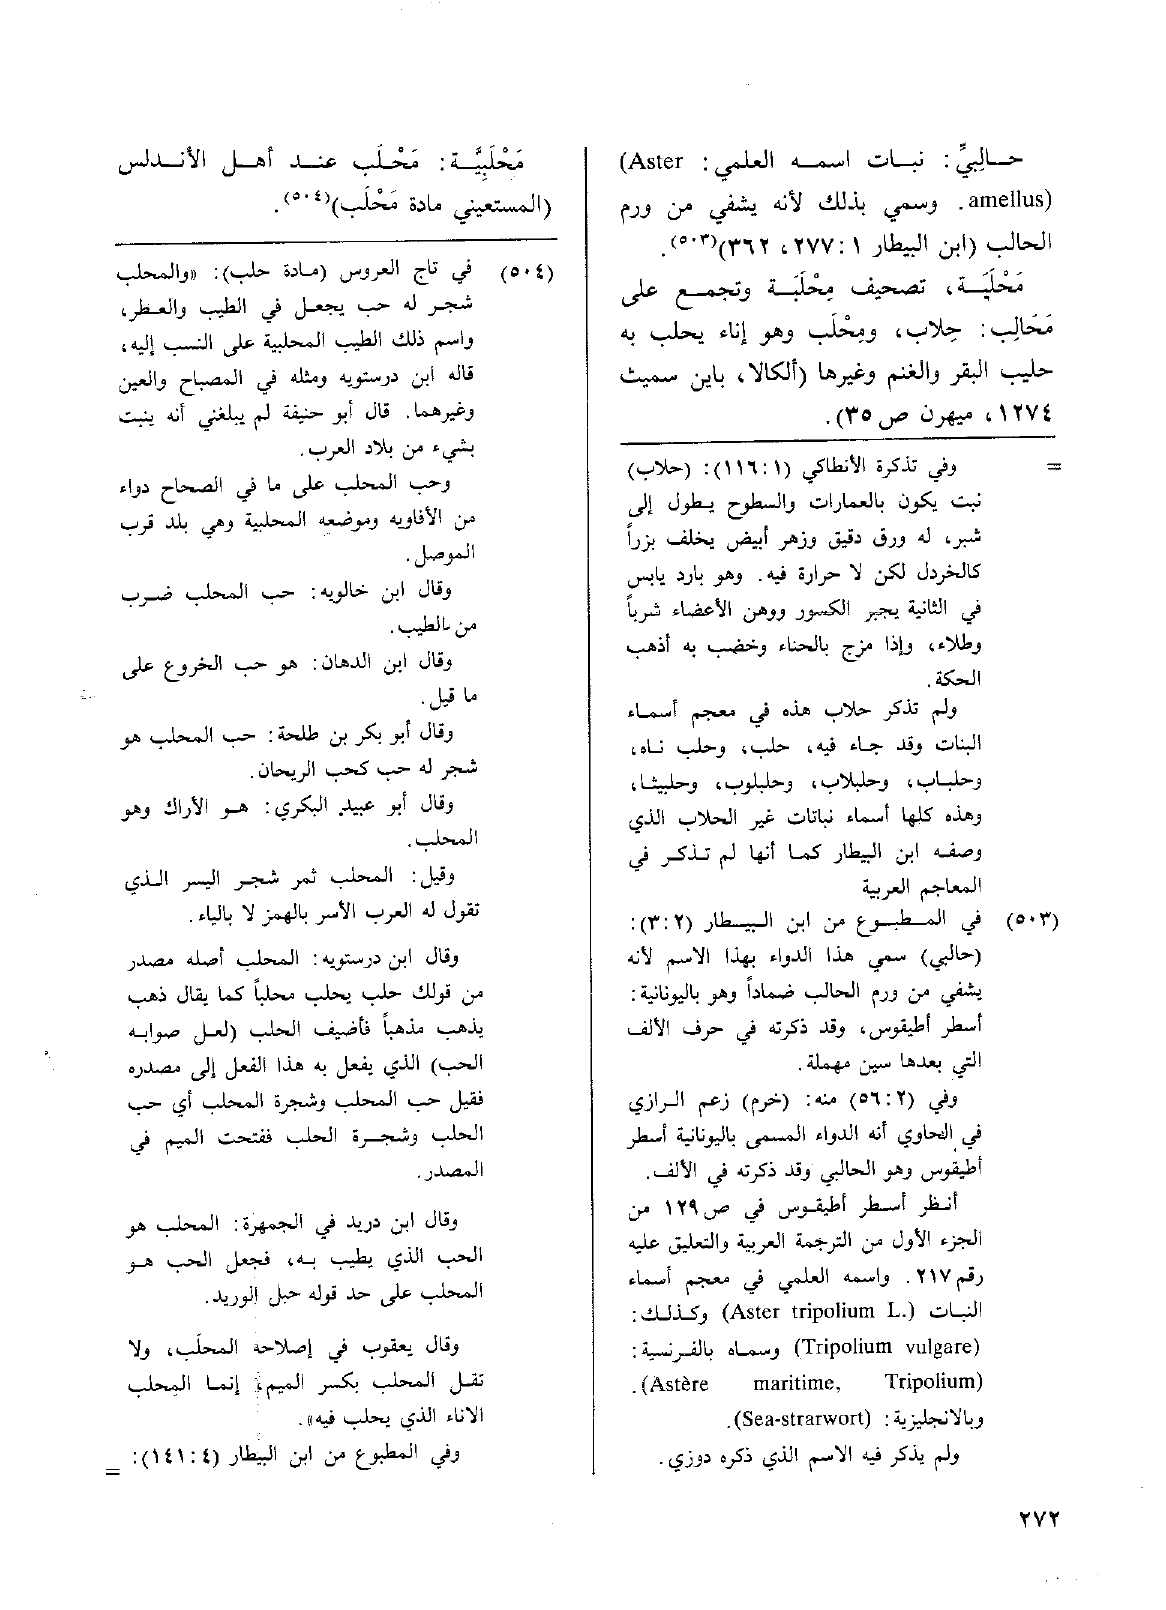 حــالِبيّ: نبــات اسمــه العلمي: (Aster
amellus). وسمي بذلك لأنه يشفي من ورم
الحالب (ابن البيطار ١: ٢٧٧، ٣٦٢)(٥٠٣).
مَحْلَبَــة، تصحيف مِحْلَبَــة وتجمــع على
مَحَالِب: حِلاب، ومِحْلَب وهو إناء يحلب به
حليب البقر والغنم وغيرها (ألكالا، باين سميث
١٢٧٤، ميهرن ص ٣٥).
= وفي تذكرة الأنطاكي (١: ١١٦): (حلاب)
نبت يكون بالعمارات والسطوح يطول إلى
شبر، له ورق دقيق وزهر أبيض يخلف بزراً
كالخردل لكن لا حرارة فيه. وهو بارد يابس
في الثانية يجبر الكسور ووهن الأعضاء شرباً
وطلاء، وإذا مزج بالحناء وخضب به أذهب
الحكة.
ولم تذكر حلاب هذه في معجم أسماء
النبات وقد جاء فيه، حلب، وحلب ناه،
وحلباب، وحلبلاب، وحلبلوب، وحلبيثا،
وهذه كلها أسماء نباتات غير الحلاب الذي
وصفه ابن البيطار كما أنها لم تذكر في
المعاجم العربية
(٥٠٣) في المطبوع من ابن البيطار (٢: ٣):
(حالبي) سمي هذا الدواء بهذا الاسم لأنه
يشفي من ورم الحالب ضماداً وهو باليونانية:
أسطر أطيقوس، وقد ذكرته في حرف الألف
التي بعدها سين مهملة.
وفي (٢: ٥٦) منه: (خرم) زعم الرازي
في الحاوي أنه الدواء المسمى باليونانية أسطر
أطيقوس وهو الحالبي وقد ذكرته في الألف.
أنظر أسطر أطيقوس في ص ١٢٩ من
الجزء الأول من الترجمة العربية والتعليق عليه
رقم ٢١٧. واسمه العلمي في معجم أسماء
النبات (Aster tripolium L.) وكذلك:
(Tripolium vulgare) وسماه بالفرنسية:
(Astère maritime, Tripolium).
وبالانجليزية: (Sea-strarwort).
ولم يذكر فيه الاسم الذي ذكره دوزي.
مَحْلَبِيَّــة: مَحْلَب عنــد أهــل الأنــدلس
(المستعيني مادة مَحْلَب)(٥٠٤).
(٥٠٤) في تاج العروس (مادة حلب): «والمحلب
شجر له حب يجعل في الطيب والعطر،
واسم ذلك الطيب المحلبية على النسب إليه،
قاله ابن درستويه ومثله في المصباح والعين
وغيرهما. قال أبو حنيفة لم يبلغني أنه ينبت
بشيء من بلاد العرب.
وحب المحلب على ما في الصحاح دواء
من الأفاويه وموضعه المحلبية وهي بلد قرب
الموصل.
وقال ابن خالويه: حب المحلب ضرب
من الطيب.
وقال ابن الدهان: هو حب الخروع على
ما قيل.
وقال أبو بكر بن طلحة: حب المحلب هو
شجر له حب كحب الريحان.
وقال أبو عبيد البكري: هو الأراك وهو
المحلب.
وقيل: المحلب ثمر شجر اليسر الذي
تقول له العرب الأسر بالهمز لا بالياء.
وقال ابن درستويه: المحلب أصله مصدر
من قولك حلب يحلب محلباً كما يقال ذهب
يذهب مذهباً فأضيف الحلب (لعل صوابه
الحب) الذي يفعل به هذا الفعل إلى مصدره
فقيل حب المحلب وشجرة المحلب أي حب
الحلب وشجرة الحلب ففتحت الميم في
المصدر.
وقال ابن دريد في الجمهرة: المحلب هو
الحب الذي يطيب به، فجعل الحب هو
المحلب على حد قوله حبل الوريد.
وقال يعقوب في إصلاحه المحلَب، ولا
تقل المحلب بكسر الميم، إنما المحلب
الاناء الذي يحلب فيه».
وفي المطبوع من ابن البيطار (٤: ١٤١): =
٢٧٢